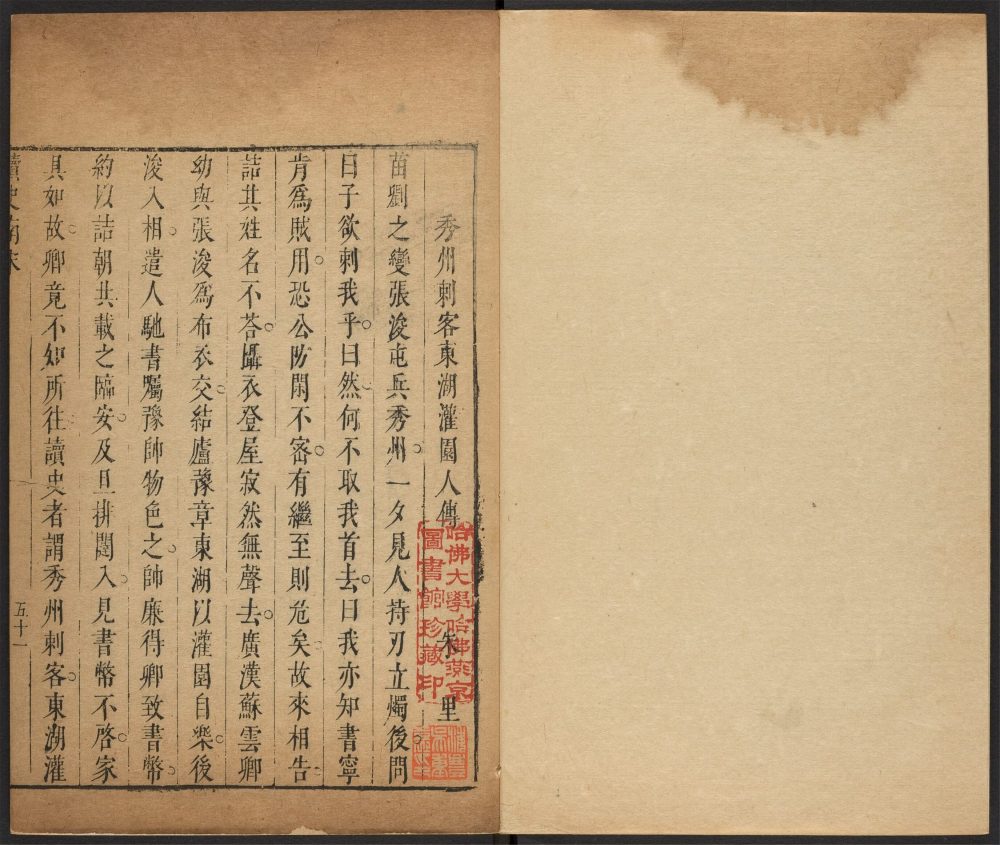 秀州刺客東湖灌園人傳 朱 里
苗劉之變張浚屯兵秀州一夕見人持刃立燭後問
曰子欲刺我乎曰然何不取我首去曰我亦知書寧
肯爲賊用恐公防閑不宻有繼至則危矣故來相告
詰其姓名不荅攝衣登屋寂然無聲去廣漢蘇雲卿
幼與張浚爲布衣交結廬豫章東湖以灌園自樂後
浚入相遣人馳書囑豫帥物色之帥廉得卿致書幣
約以詰朝共載之臨安及旦排闥入見書幣不啓家
具如故卿竟不知所往讀史者謂秀州刺客東湖灌
五十一
哈佛大學哈佛燕京
圖書館珍藏印